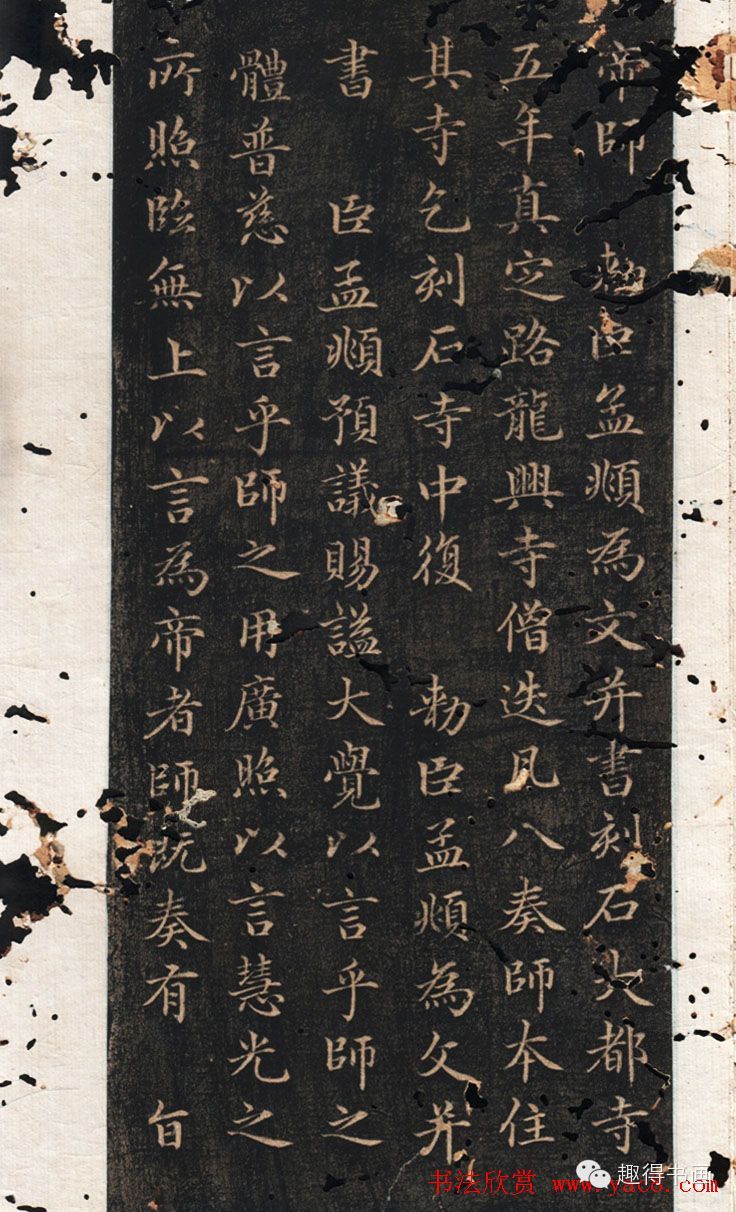 帝師 勑臣孟頫為文并書刻石大都寺
五年真定路龍興寺僧迭凡八奏師本住
其寺乞刻石寺中復 勑臣孟頫為文并
書 臣孟頫預議賜謚大覺以言乎師之
體普慈以言乎師之用廣照以言慧光之
所照臨無上以言為帝者師既奏有 旨
书法欣赏 www.yac8.com
趣得书画